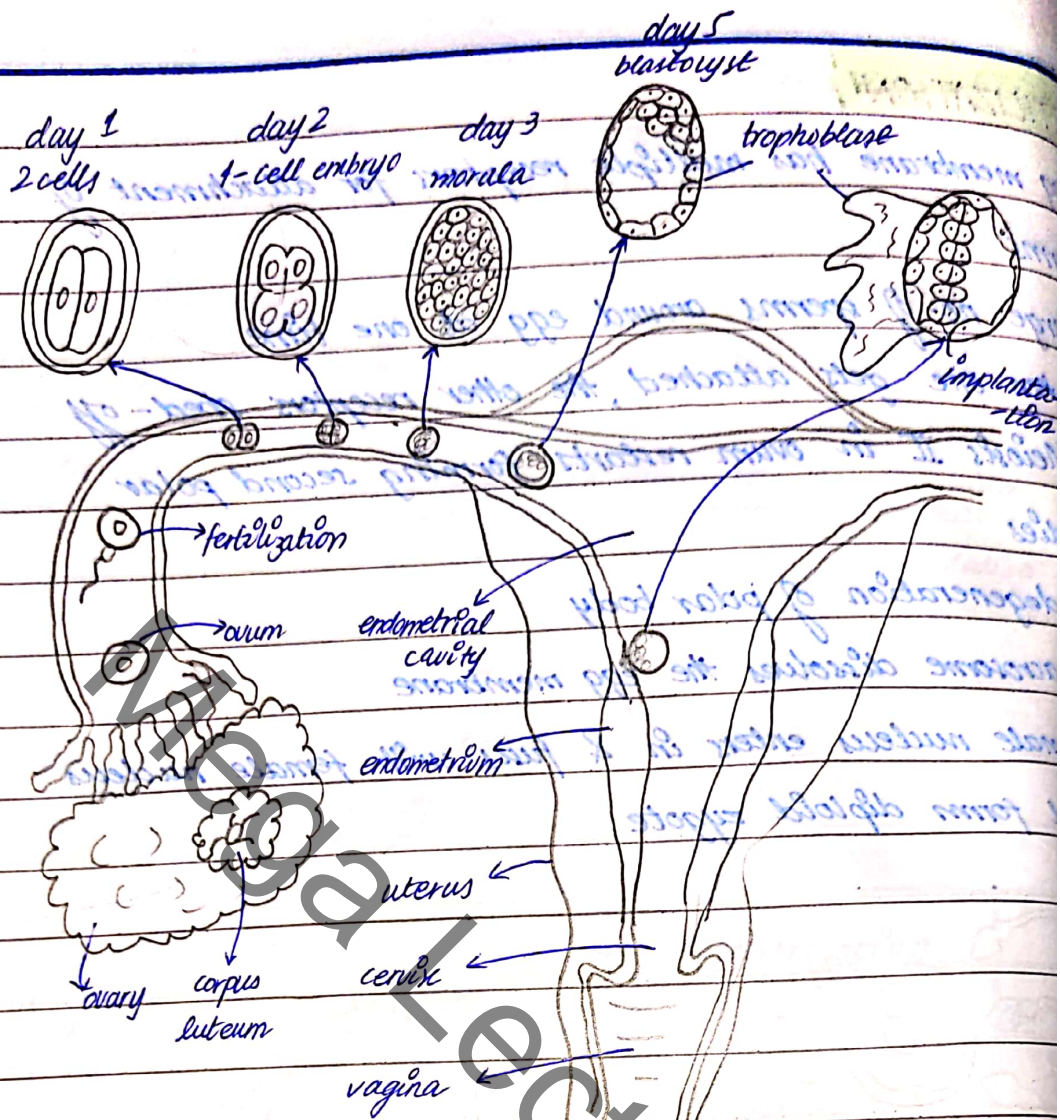 day 1
2 cells
day 2
4-cell embryo
day 3
morula
day 5
blastocyst
trophoblase
implanta
-tion
fertilization
ovum
endometrial
cavity
endometrium
uterus
cervix
vagina
ovary
corpus
luteum
Mega Lect